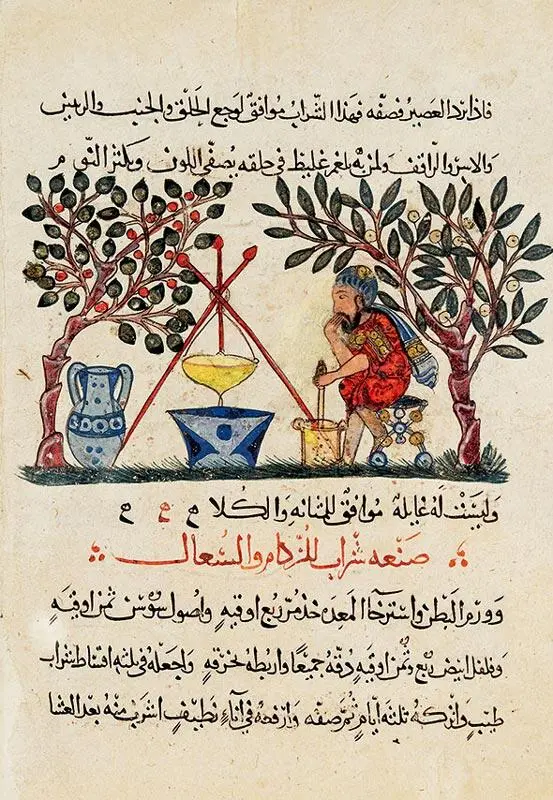 فاذا برد العصير فصفه فهذا الشراب موافق لوجع الحلق والجنب
ولمن به بلغم غليظ في حلقه يصفي اللون ويكثر النوم
وليست له غايلة موافق للمثانه والكلا ح ح ح
صنعه شراب للزكام والسعال
وورم البطن واسترخا المعده خذ مر ربع اوقيه واصول سوسن ثمن اوقيه
وفلفل ابيض ربع وثمن اوقيه دقه جميعا واربطه بخرقه واجعله في ثلثه اقساط شراب
طيب واتركه ثلثه ايام ثم صفه وارفعه في اناء نظيف اشرب منه بعد العشا